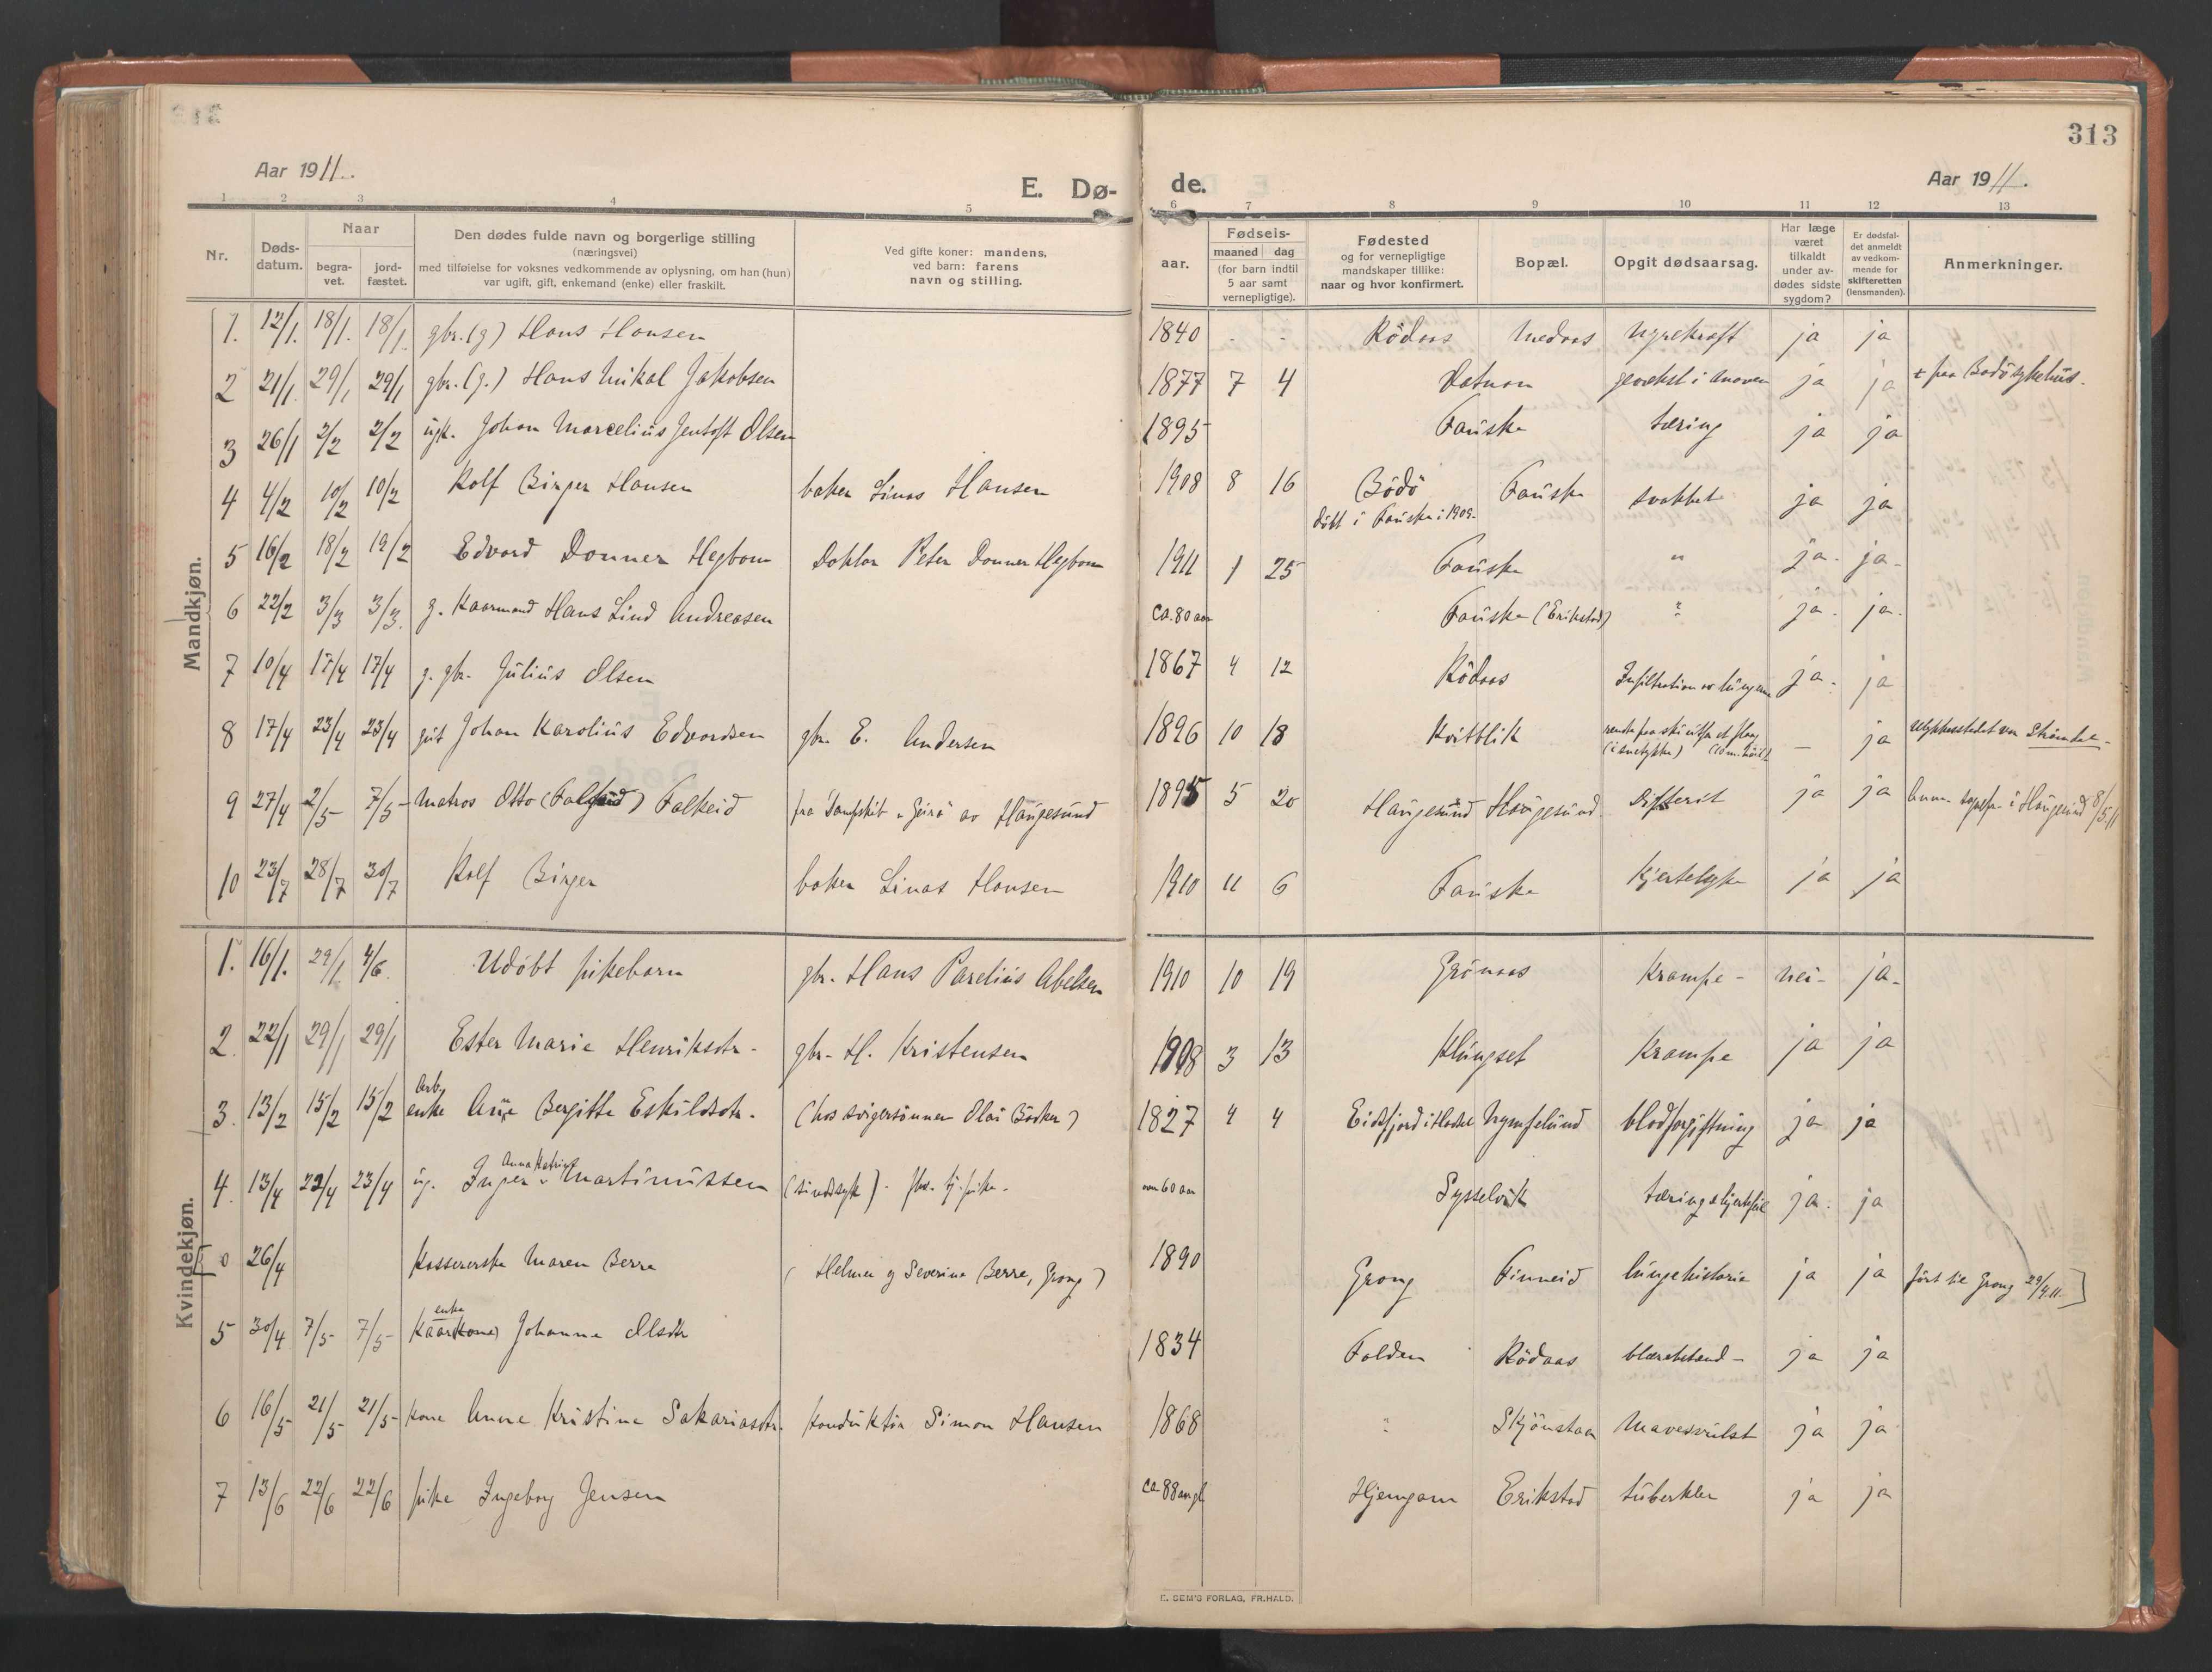 313
Aar 1911.
E. Dø-
de.
Aar 1911.
1 2 3 4 5 6 7 8 9 10 11 12 13
Nr.
Døds-
datum.
Naar
begra-
vet.
jord-
fæstet.
Den dødes fulde navn og borgerlige stilling
(næringsvei)
med tilføielse for voksnes vedkommende av oplysning, om han (hun)
var ugift, gift, enkemand (enke) eller fraskilt.
Ved gifte koner: mandens,
ved barn: farens
navn og stilling.
aar.
Fødsels-
maaned dag
(for barn indtil
5 aar samt
vernepligtige).
Fødested
og for vernepligtige
mandskaper tillike:
naar og hvor konfirmert.
Bopæl.
Opgit dødsaarsag.
Har læge
været
tilkaldt
under av-
dødes sidste
sygdom?
Er dødsfal-
det anmeldt
av vedkom-
mende for
skifteretten
(lensmanden).
Anmerkninger.
Mandkjøn.
1. 12/1. 18/1. 18/1. gbr. (g) Hans Hansen 1840 - - Rödaas Medaas Nyrekræft ja ja
2 21/1 29/1 29/1 gbr. (g.) Hans Mikal Jakobsen 1877 7 4 Vatnan i maven ja ja + paa Bodö sykehus.
3 26/1 2/2 2/2 ugk. Johan Marcelius Jentoft Olsen 1895 Fauske tæring ja ja
4 4/2 10/2 10/2 Rolf Birger Hansen baker Linas Hansen 1908 8 16 Bödö Fauske svakhet ja ja
döbt i Fauske i 1909.
5 16/2 18/2 19/2 Edvard Donner Hegbom Doktor Peter Donner Hegbom 1911 1 25 Fauske " ja. ja.
6 22/2 3/3 3/3. g. kaarmand Hans Lind Andreasen ca. 80 aar Fauske (Erikstad) ? ja. ja.
7 10/4 17/4 17/4 g. gbr. Julius Olsen 1867 4 12 Rödaas Infiltration av lungene ja. ja
8 17/4 23/4 23/4 gut Johan Karolius Edvardsen gbr. E. Andersen 1896 10 18 Kvitblik - ja Ulykkesstedet var
9 27/4 2/5 7/5 Matros Otto Falkeid fra Dampskib av Haugesund 1895 5 20 Haugesund Haugesund. Difterit ja ja i Haugesund 8/5.11
10 23/7 28/7 30/7 Rolf Birger baker Linas Hansen 1910 11 6 Fauske Kjertelsyke ja ja
Kvindekjøn.
1. 16/1. 29/1 4/6. Udöbt pikebarn gbr. Hans Parelius Abelsen 1910 10 19 Grönaas Krampe - nei - ja.
2. 22/1 29/1 29/1 Ester Marie Henriksdtr. gbr. H. Kristensen 1908 3 13 Klungset Krampe ja ja
Arb.
3. 13/2 15/2 15/2 enke Ane Bergitte Eskildsdtr. (hos svigersönnen Olai Bödker) 1827 4 4 Eidsfjord i Hadsel Nymfelund blodforgiftning ja ja
Anna Katrine
4. 13/4 22/4 23/4 ug. Inger Martinussen (sindssyk) - fhv. tj. pike. om 60 aar Sysselvik tæring & hjertefeil ja. ja
[0 26/4 Kassererske Maren Berre (Helmer og Severine Berre, Grong) 1890 Grong Finneid lungehistorie ja ja fört til Grong 29/4.11.]
enke
5 30/4 7/5 7/5 Kaar(kone) Johanna Olsdtr 1834 Folden Rödaas blærekatarr - ja ja
6 16/5 21/5 21/5 kone Anne Kristine Sakariasdtr. konduktör Simon Hansen 1868 " Skjönstaa Mavesvulst ja ja
7 13/6 22/6 22/6 pike Ingeborg Jensen ca 88 aar gl Hjemgam Erikstad tuberkler ja ja
E. SEM'S FORLAG, FR.HALD.